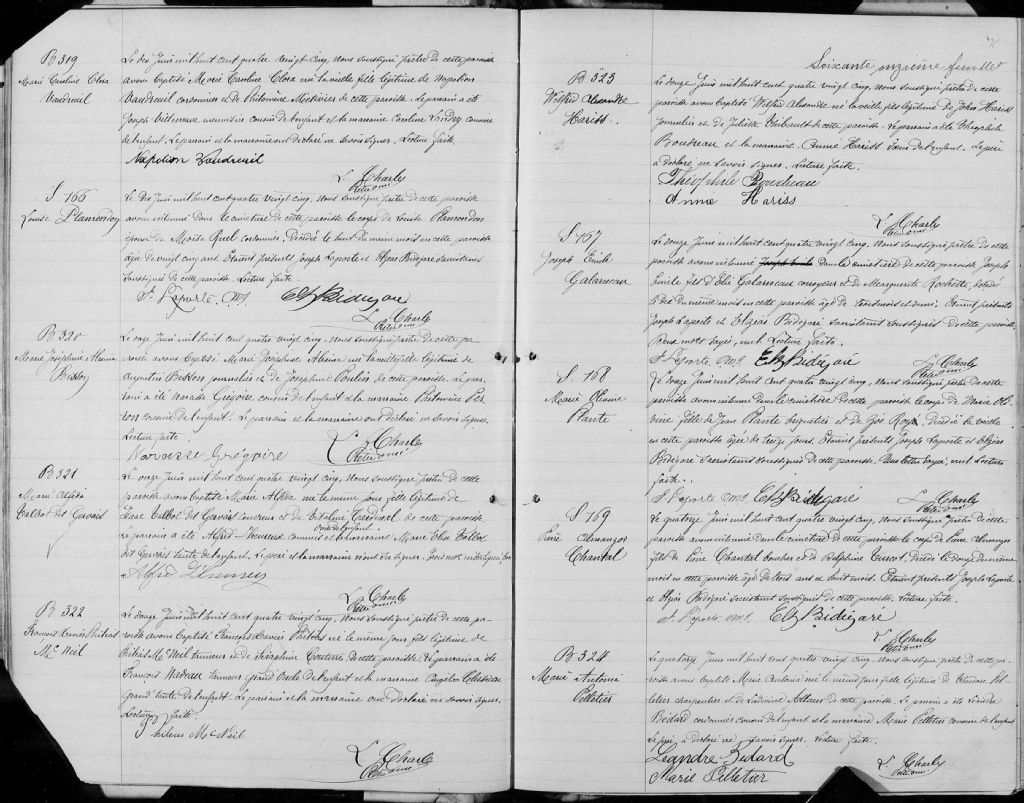 B 319
Marie Caroline Clora
Vaudreuil
Le dix Juin mil huit cent quatre vingt cinq, Nous soussigné prêtre de cette paroisse
avons baptisé Marie Caroline Clora née la veille fille légitime de Napoléon
Vaudreuil cordonnier et de Philomène Métivier de cette paroisse. Le parrain a été
Joseph Villeneuve menuisier cousin de l'enfant et la marraine Caroline Landry cousine
de l'enfant. Le parrain et la marraine ont déclaré ne savoir signer. Lecture faite.
Napoléon Vaudreuil
F. X. Charles
S 166
Louise Plamondon
Le dix Juin mil huit cent quatre vingt cinq, Nous soussigné prêtre de cette paroisse
avons inhumé dans le cimetière de cette paroisse le corps de Louise Plamondon
épouse de Moïse Ruel cordonnier, décédée le huit du même mois en cette paroisse
âgée de vingt cinq ans. Etaient présents Joseph Laporte et Elzéar Bédégaré sacristains
soussignés de cette paroisse. Lecture faite
J. Laporte
Elz Bidégaré
Charles
B 320
Marie Joséphine
Bisson
Le onze Juin mil huit cent quatre vingt cinq, Nous soussigné prêtre de cette pa-
roisse avons baptisé Marie Joséphine née la veille fille légitime de
Augustin Bisson journalier et de Joséphine Poulin de cette paroisse. Le par-
rain a été Narcisse Grégoire cousin de l'enfant et la marraine Philomène
cousine de l'enfant. Le parrain et la marraine ont déclaré ne savoir signer.
Lecture faite.
Narcisse Grégoire
Charles
B 321
Marie
Talbot dit Gervais
Le onze Juin mil huit cent quatre vingt cinq, Nous soussigné prêtre de cette
paroisse avons baptisé Marie née le même jour fille légitime de
Talbot dit Gervais corroyeur et de Cardinal de cette paroisse
Le parrain a été Alfred commis et la marraine Marie Talbot
dit Gervais tante de l'enfant. Le père et la marraine n'ont su signer.
Alfred
Charles
B 322
François Xavier
Mc Neil
Le douze Juin mil huit cent quatre vingt cinq, Nous soussigné prêtre de cette pa-
roisse avons baptisé François Xavier né le même jour fils légitime de
Mc Neil tanneur et de Séraphine Couture de cette paroisse. Le parrain a été
François Nadeau tanneur grand oncle de l'enfant et la marraine Angèle
Grand tante de l'enfant. Le parrain et la marraine ont déclaré ne savoir signer.
Lecture faite.
Mc Neil
Charles
Soixante onzième feuillet
B 323
Wilfrid Alexandre
Hariss.
Le douze Juin mil huit cent quatre vingt cinq, Nous soussigné prêtre de cette
paroisse avons baptisé Wilfrid Alexandre né la veille fils légitime de John Hariss
journalier et de Juliette Thibault de cette paroisse. Le parrain a été Théophile
Boudreau et la marraine Annie Hariss sœur de l'enfant. Le père
a déclaré ne savoir signer. Lecture faite.
Théophile Boudreau
Annie Hariss
Charles
S 167
Joseph Emile
Galarneau
Le douze Juin mil huit cent quatre vingt cinq, Nous soussigné prêtre de cette
paroisse avons inhumé Joseph Emile dans le cimetière de cette paroisse Joseph
Emile fils d'Elie Galarneau corroyeur et de Marguerite Rochette, décédé
le dix du même mois en cette paroisse âgé de trois mois et demi. Etaient présents
Joseph Laporte et Elzéar Bidégaré sacristains soussignés de cette paroisse.
Deux mots rayés, nuls. Lecture faite.
J. Laporte
Elz Bidégaré
Charles
S. 168
Marie Olivine
Plante
Le douze Juin mil huit cent quatre vingt cinq, Nous soussigné prêtre de cette
paroisse avons inhumé dans le cimetière de cette paroisse le corps de Marie Oli-
vine fille de Jean Plante et de Roya, décédée la veille
en cette paroisse âgée de treize jours. Etaient présents Joseph Laporte et Elzéar
Bidégaré sacristains soussignés de cette paroisse. Une lettre rayée, nulle. Lecture
faite.
J. Laporte
Elz Bidégaré
Charles
S 169
Pierre Almanzor
Chantal
Le quatorze Juin mil huit cent quatre vingt cinq, Nous soussigné prêtre de cette
paroisse avons inhumé dans le cimetière de cette paroisse le corps de Pierre Almanzor
fils de Pierre Chantal boucher et de Delphine Turcot, décédé le douze du même
mois en cette paroisse âgé de trois ans et huit mois. Etaient présents Joseph Laporte
et Elzéar Bidégaré sacristains soussignés de cette paroisse. Lecture faite.
J. Laporte
Elz Bidégaré
Charles
B 324
Marie Antonia
Pelletier
Le quatorze Juin mil huit cent quatre vingt cinq, Nous soussigné prêtre de cette pa-
roisse avons baptisé Marie Antonia née le même jour fille légitime de Pel-
letier charpentier et de Ludivine de cette paroisse. Le parrain a été Léandre
Bédard cordonnier cousin de l'enfant et la marraine Marie Pelletier cousine de l'enfant.
Le père a déclaré ne savoir signer. Lecture faite.
Léandre Bédard
Marie Pelletier
Charles